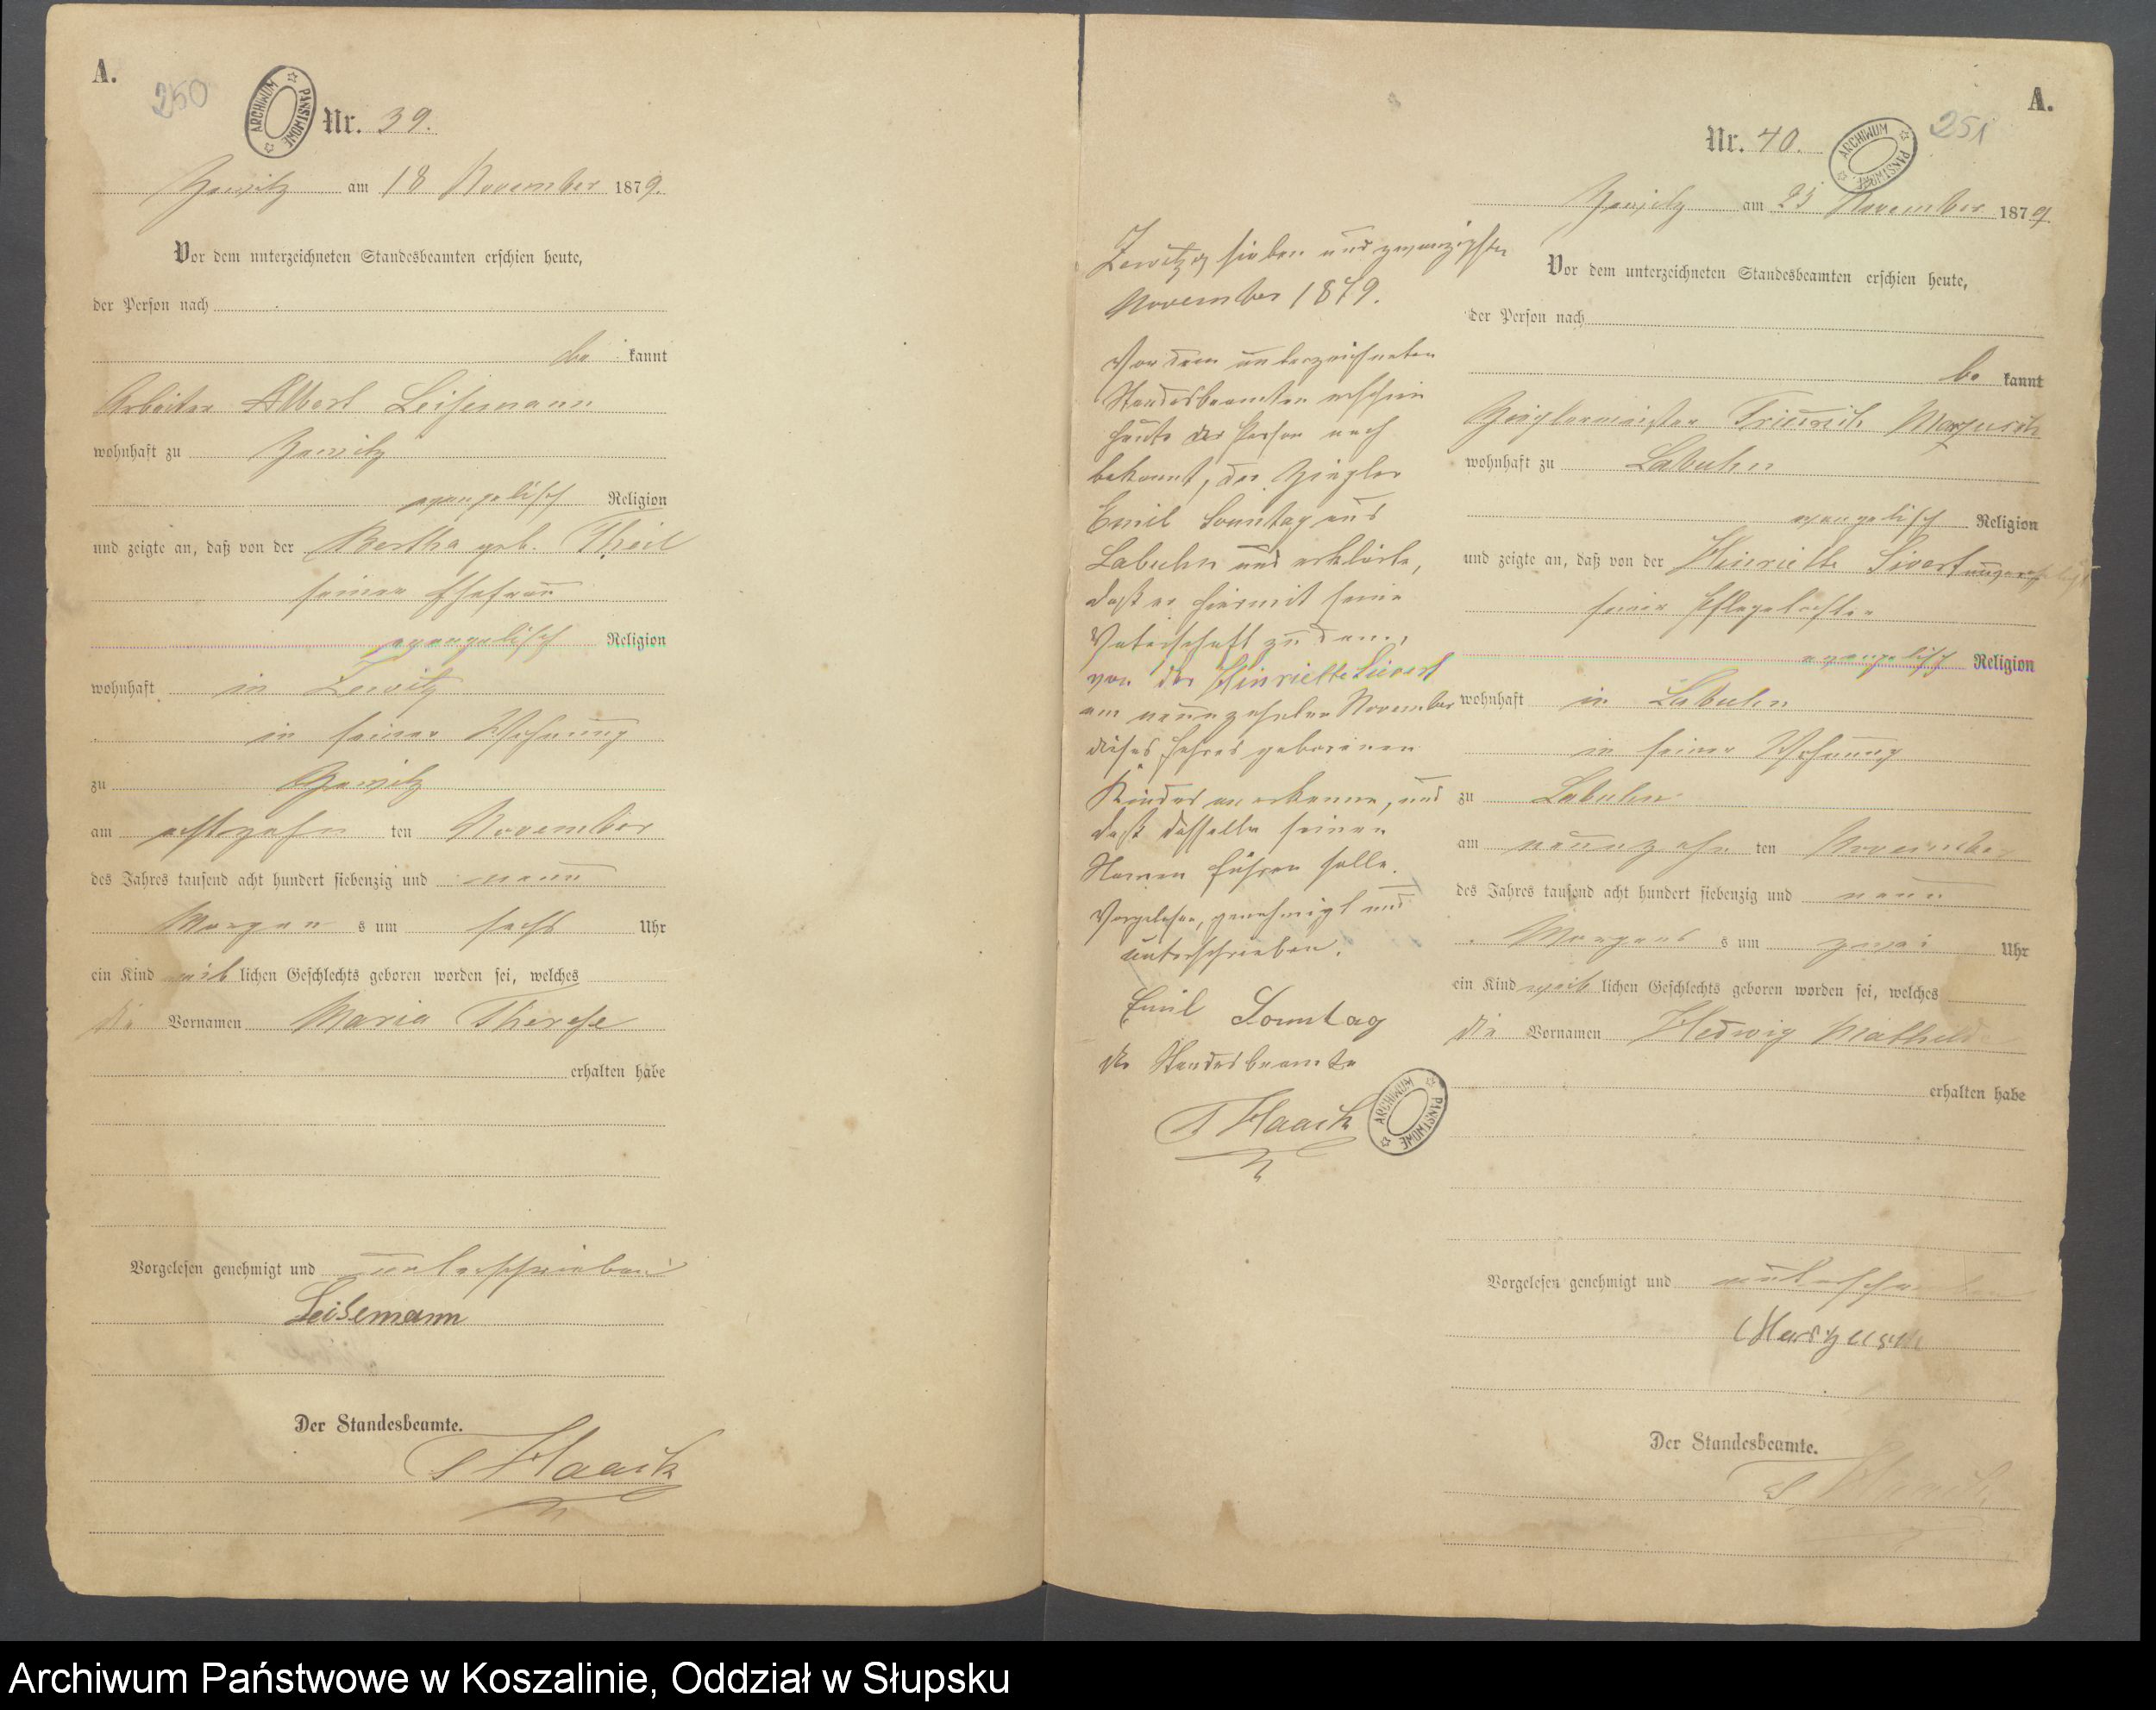 A.
250
ARCHIWUM PAŃSTWOWE
Nr. 39.
Zewitz am 18 November 1879.
Vor dem unterzeichneten Standesbeamten erschien heute,
der Person nach
be kannt
Arbeiter Albert Leisemann
wohnhaft zu Zewitz
evangelisch Religion
und zeigte an, daß von der Bertha geb. Theil
seiner Ehefrau
evangelisch Religion
wohnhaft in Zewitz
in seiner Wohnung
zu Zewitz
am achtzehn ten November
des Jahres tausend acht hundert siebenzig und neun
Morgen s um sechs Uhr
ein Kind weib lichen Geschlechts geboren worden sei, welches
die Vornamen Maria Therese
erhalten habe
Vorgelesen genehmigt und unterschrieben
Leisemann
Der Standesbeamte.
Haack
A.
251
Nr. 40.
ARCHIWUM PAŃSTWOWE
Zewitz am 25 November 1879.
Vor dem unterzeichneten Standesbeamten erschien heute,
der Person nach
be kannt
Zieglermeister Friedrich
wohnhaft zu Labuhn
evangelisch Religion
und zeigte an, daß von der Henriette Sivert unverehelicht
seiner Pflegetochter
evangelisch Religion
wohnhaft in Labuhn
in seiner Wohnung
zu Labuhn
am neunzehn ten November
des Jahres tausend acht hundert siebenzig und neun
Morgens s um zwei Uhr
ein Kind weib lichen Geschlechts geboren worden sei, welches
die Vornamen Hedwig Mathilde
erhalten habe
Vorgelesen genehmigt und unterschrieben
Der Standesbeamte.
Haack
Zewitz sieben und zwanzigsten
November 1879.
Vor dem unterzeichneten
Standesbeamten erschien
heute der Person nach
bekannt, der Ziegler
Emil Sonntag aus
Labuhn und erklärte,
daß er hiermit seine
Vaterschaft zu dem,
von der Henriette Sievert
am neunzehnten November
dieses Jahres geborenen
Kindes anerkenne, und
daß dasselbe seinen
Namen führen solle.
Vorgelesen, genehmigt und
unterschrieben.
Emil Sonntag
der Standesbeamte
Haack
ARCHIWUM PAŃSTWOWE
Archiwum Państwowe w Koszalinie, Oddział w Słupsku